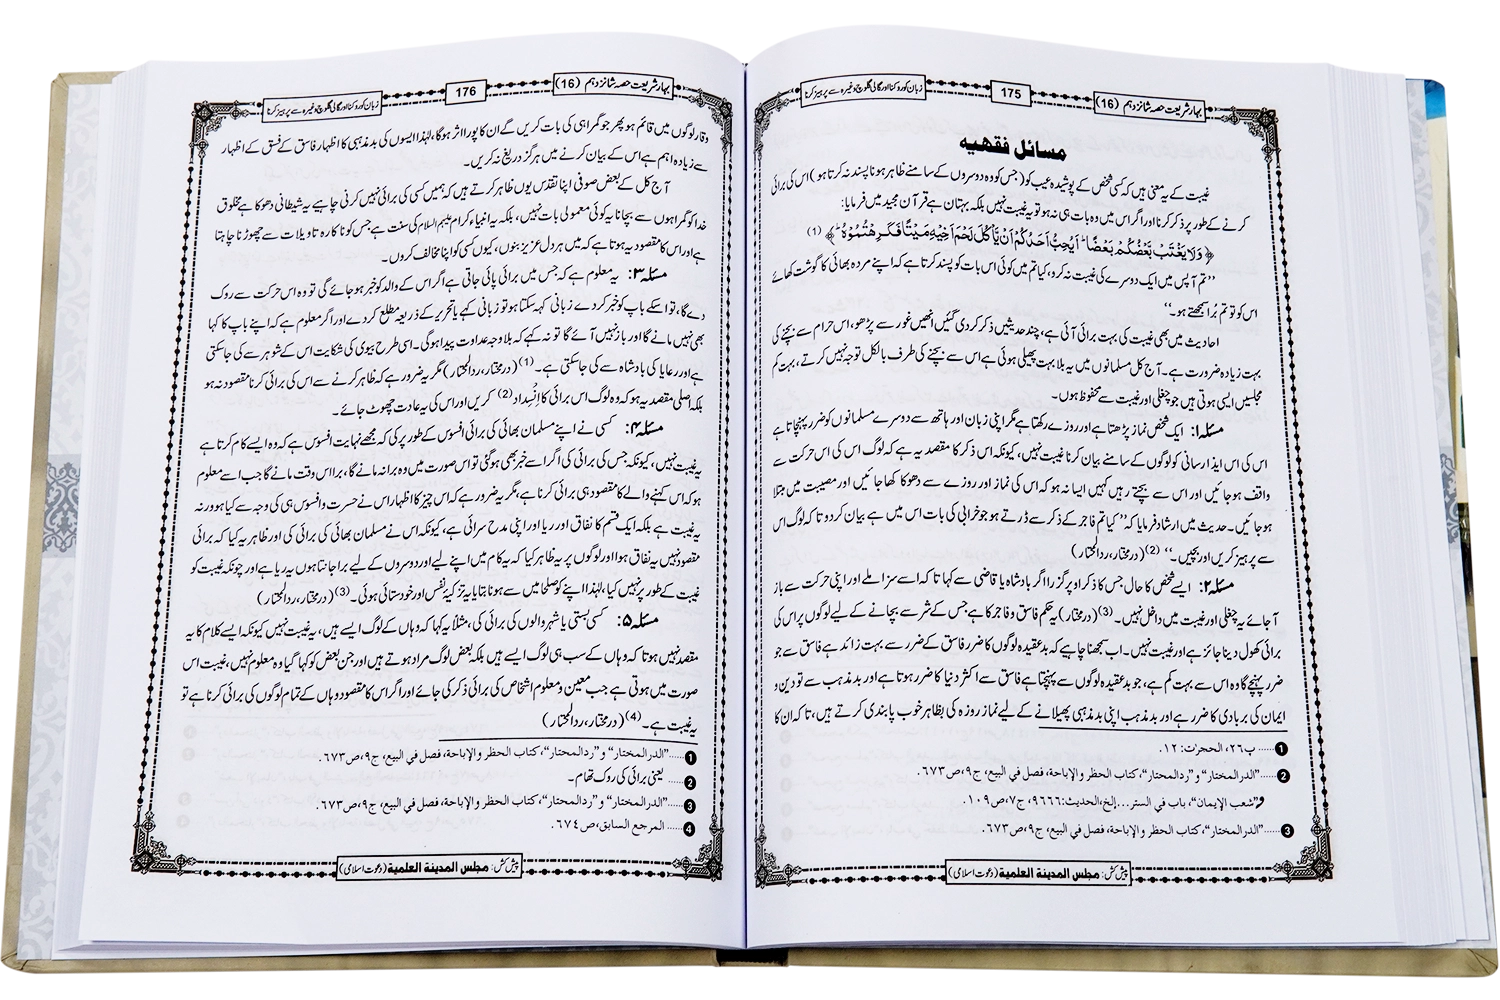 بہارشریعت حصہ شانزدہم (16)
175
زبان کو روکنا اور گالی گلوچ وغیرہ سے پرہیز کرنا
مسائل فقهیه
غیبت کے یہ معنی ہیں کہ کسی شخص کے پوشیدہ عیب کو (جس کو وہ دوسروں کے سامنے ظاہر ہونا پسند نہ کرتا ہو) اس کی برائی
کرنے کے طور پر ذکر کرنا اور اگر اس میں وہ بات ہی نہ ہو تو یہ غیبت نہیں بلکہ بہتان ہے قرآن مجید میں فرمایا:
﴿ وَلَا یَغْتَبْ بَّعْضُكُمْ بَعْضًاؕ-اَیُحِبُّ اَحَدُكُمْ اَنْ یَّاْكُلَ لَحْمَ اَخِیْهِ مَیْتًا فَكَرِهْتُمُوْهُؕ ﴾ (1)
”تم آپس میں ایک دوسرے کی غیبت نہ کرو، کیا تم میں کوئی اس بات کو پسند کرتا ہے کہ اپنے مردہ بھائی کا گوشت کھائے
اس کو تو تم بُرا سمجھتے ہو۔“
احادیث میں بھی غیبت کی بہت برائی آئی ہے، چند حدیثیں ذکر کردی گئیں انھیں غور سے پڑھو، اس حرام سے بچنے کی
بہت زیادہ ضرورت ہے۔ آج کل مسلمانوں میں یہ بلا بہت پھیلی ہوئی ہے اس سے بچنے کی طرف بالکل توجہ نہیں کرتے، بہت کم
مجلسیں ایسی ہوتی ہیں جو چغلی اور غیبت سے محفوظ ہوں۔
مسئلہ۱: ایک شخص نماز پڑھتا ہے اور روزے رکھتا ہے مگر اپنی زبان اور ہاتھ سے دوسرے مسلمانوں کو ضرر پہنچاتا ہے
اس کی اس ایذا رسانی کو لوگوں کے سامنے بیان کرنا غیبت نہیں، کیونکہ اس ذکر کا مقصد یہ ہے کہ لوگ اس کی اس حرکت سے
واقف ہوجائیں اور اس سے بچتے رہیں کہیں ایسا نہ ہو کہ اس کی نماز اور روزے سے دھوکا کھا جائیں اور مصیبت میں مبتلا
ہوجائیں۔ حدیث میں ارشاد فرمایا کہ” کیا تم فاجر کے ذکر سے ڈرتے ہو جو خرابی کی بات اس میں ہے بیان کردو تاکہ لوگ اس
سے پرہیز کریں اور بچیں۔“ (2) (درمختار، ردالمحتار)
مسئلہ۲: ایسے شخص کا حال جس کا ذکر اوپر گزرا اگر بادشاہ یا قاضی سے کہا تاکہ اسے سزا ملے اور اپنی حرکت سے باز
آجائے یہ چغلی اور غیبت میں داخل نہیں۔ (3) (درمختار) یہ حکم فاسق و فاجر کا ہے جس کے شر سے بچانے کے لیے لوگوں پر اس کی
برائی کھول دینا جائز ہے اور غیبت نہیں۔ اب سمجھنا چاہیے کہ بدعقیدہ لوگوں کا ضرر فاسق کے ضرر سے بہت زائد ہے فاسق سے جو
ضرر پہنچے گا وہ اس سے بہت کم ہے، جو بدعقیدہ لوگوں سے پہنچتا ہے فاسق سے اکثر دنیا کا ضرر ہوتا ہے اور بدمذہب سے تو دین و
ایمان کی بربادی کا ضرر ہے اور بدمذہب اپنی بدمذہبی پھیلانے کے لیے نماز روزہ کی بظاہر خوب پابندی کرتے ہیں، تاکہ ان کا
1 ..... پ۲۶، الحجرٰت: ۱۲.
2 ..... ”الدرالمختار“ و ”ردالمحتار“، کتاب الحظر والإباحة، فصل في البیع، ج۹، ص۶۷۳.
و”شعب الإیمان“، باب في الستر...إلخ، الحدیث:۹۶۶۶، ج۷، ص۱۰۹.
3 ..... ”الدرالمختار“، کتاب الحظر والإباحة، فصل في البیع، ج۹، ص۶۷۳.
پیش کش: مجلس المدینة العلمیة (دعوت اسلامی)
بہارشریعت حصہ شانزدہم (16)
176
زبان کو روکنا اور گالی گلوچ وغیرہ سے پرہیز کرنا
وقار لوگوں میں قائم ہو پھر جو گمراہی کی بات کریں گے ان کا پورا اثر ہوگا، لہٰذا ایسوں کی بدمذہبی کا اظہار فاسق کے فسق کے اظہار
سے زیادہ اہم ہے اس کے بیان کرنے میں ہرگز دریغ نہ کریں۔
آج کل کے بعض صوفی اپنا تقدس یوں ظاہر کرتے ہیں کہ ہمیں کسی کی برائی نہیں کرنی چاہیے یہ شیطانی دھوکا ہے مخلوق
خدا کو گمراہوں سے بچانا یہ کوئی معمولی بات نہیں، بلکہ یہ انبیاء کرام علیہم السلام کی سنت ہے جس کو ناکارہ تاویلات سے چھوڑنا چاہتا
ہے اور اس کا مقصود یہ ہوتا ہے کہ میں ہر دل عزیز بنوں، کیوں کسی کو اپنا مخالف کروں۔
مسئلہ۳: یہ معلوم ہے کہ جس میں برائی پائی جاتی ہے اگر اس کے والد کو خبر ہوجائے گی تو وہ اس حرکت سے روک
دے گا، تو اسکے باپ کو خبر کردے زبانی کہہ سکتا ہو تو زبانی کہے یا تحریر کے ذریعہ مطلع کردے اور اگر معلوم ہے کہ اپنے باپ کا کہا
بھی نہیں مانے گا اور باز نہیں آئے گا تو نہ کہے کہ بلاوجہ عداوت پیدا ہوگی۔ اسی طرح بیوی کی شکایت اس کے شوہر سے کی جاسکتی
ہے اور رعایا کی بادشاہ سے کی جاسکتی ہے۔ (1) (درمختار، ردالمحتار) مگر یہ ضرور ہے کہ ظاہر کرنے سے اس کی برائی کرنا مقصود نہ ہو
بلکہ اصلی مقصد یہ ہو کہ وہ لوگ اس برائی کا اِنْسِداد (2) کریں اور اس کی یہ عادت چھوٹ جائے۔
مسئلہ۴: کسی نے اپنے مسلمان بھائی کی برائی افسوس کے طور پر کی کہ مجھے نہایت افسوس ہے کہ وہ ایسے کام کرتا ہے
یہ غیبت نہیں، کیونکہ جس کی برائی کی اگر اسے خبر بھی ہوگئی تو اس صورت میں وہ برا نہ مانے گا، برا اس وقت مانے گا جب اسے معلوم
ہو کہ اس کہنے والے کا مقصود ہی برائی کرنا ہے، مگر یہ ضرور ہے کہ اس چیز کا اظہار اس نے حسرت و افسوس ہی کی وجہ سے کیا ہو ورنہ
یہ غیبت ہے بلکہ ایک قسم کا نفاق اور ریا اور اپنی مدح سرائی ہے، کیونکہ اس نے مسلمان بھائی کی برائی کی اور ظاہر یہ کیا کہ برائی
مقصود نہیں یہ نفاق ہوا اور لوگوں پر یہ ظاہر کیا کہ یہ کام میں اپنے لیے اور دوسروں کے لیے برا جانتا ہوں یہ ریا ہے اور چونکہ غیبت کو
غیبت کے طور پر نہیں کیا، لہٰذا اپنے کو صلحا میں سے ہونا بتایا یہ تزکیۂ نفس اور خودستائی ہوئی۔ (3) (درمختار، ردالمحتار)
مسئلہ۵: کسی بستی یا شہر والوں کی برائی کی، مثلاً یہ کہا کہ وہاں کے لوگ ایسے ہیں، یہ غیبت نہیں کیونکہ ایسے کلام کا یہ
مقصد نہیں ہوتا کہ وہاں کے سب ہی لوگ ایسے ہیں بلکہ بعض لوگ مراد ہوتے ہیں اور جن بعض کو کہا گیا وہ معلوم نہیں، غیبت اس
صورت میں ہوتی ہے جب معین و معلوم اشخاص کی برائی ذکر کی جائے اور اگر اس کا مقصود وہاں کے تمام لوگوں کی برائی کرنا ہے تو
یہ غیبت ہے۔ (4) (درمختار، ردالمحتار)
1 ..... ”الدرالمختار“ و ”ردالمحتار“، کتاب الحظر والإباحة، فصل في البیع، ج۹، ص۶۷۳.
2 ..... یعنی برائی کی روک تھام۔
3 ..... ”الدرالمختار“ و ”ردالمحتار“، کتاب الحظر والإباحة، فصل في البیع، ج۹، ص۶۷۳.
4 ..... المرجع السابق، ص۶۷۴.
پیش کش: مجلس المدینة العلمیة (دعوت اسلامی)